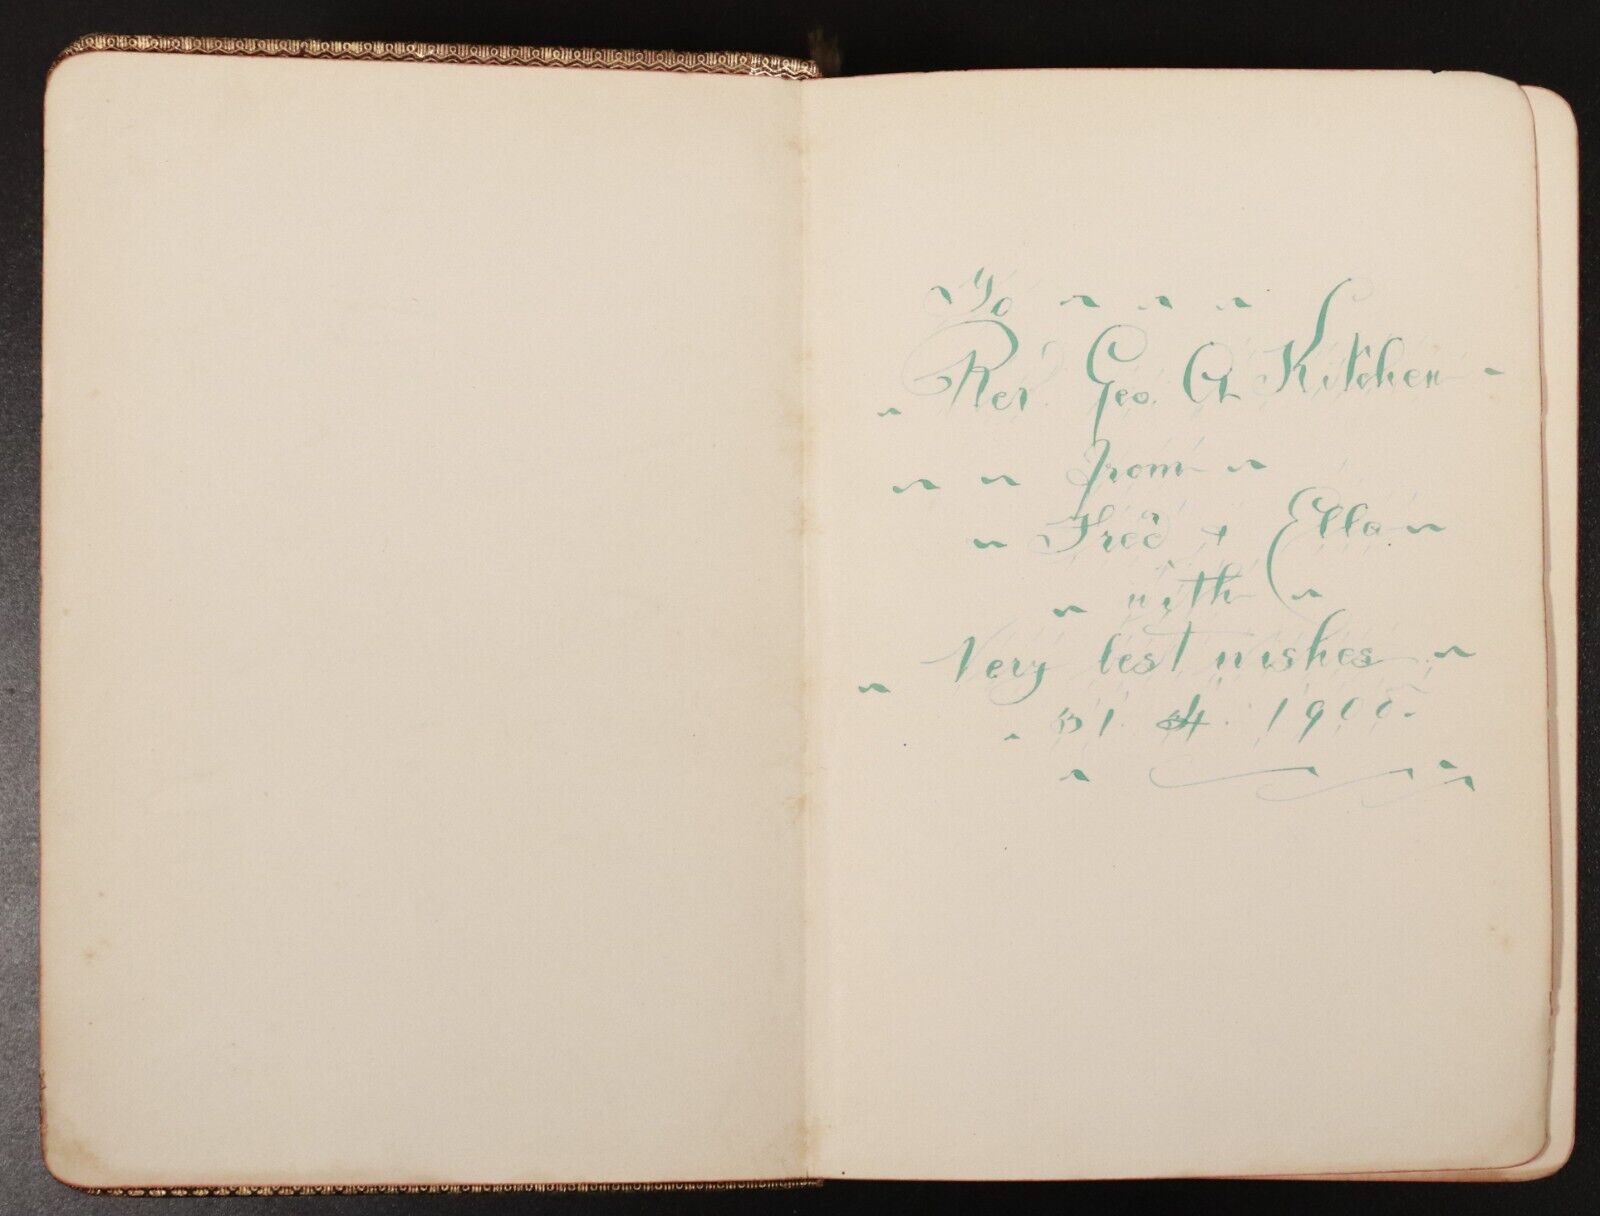 To
Rev. Geo. A. Kitchen
from
Fred & Ella
with
Very best wishes
31. 1900.